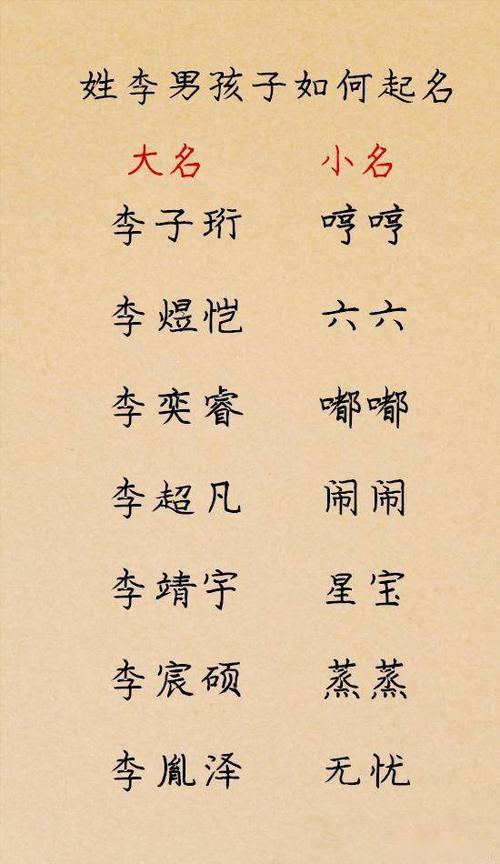 姓李男孩子如何起名
大名 小名
李子珩 哼哼
李煜恺 六六
李奕睿 嘟嘟
李超凡 闹闹
李靖宇 星宝
李宸硕 蒸蒸
李胤泽 无忧